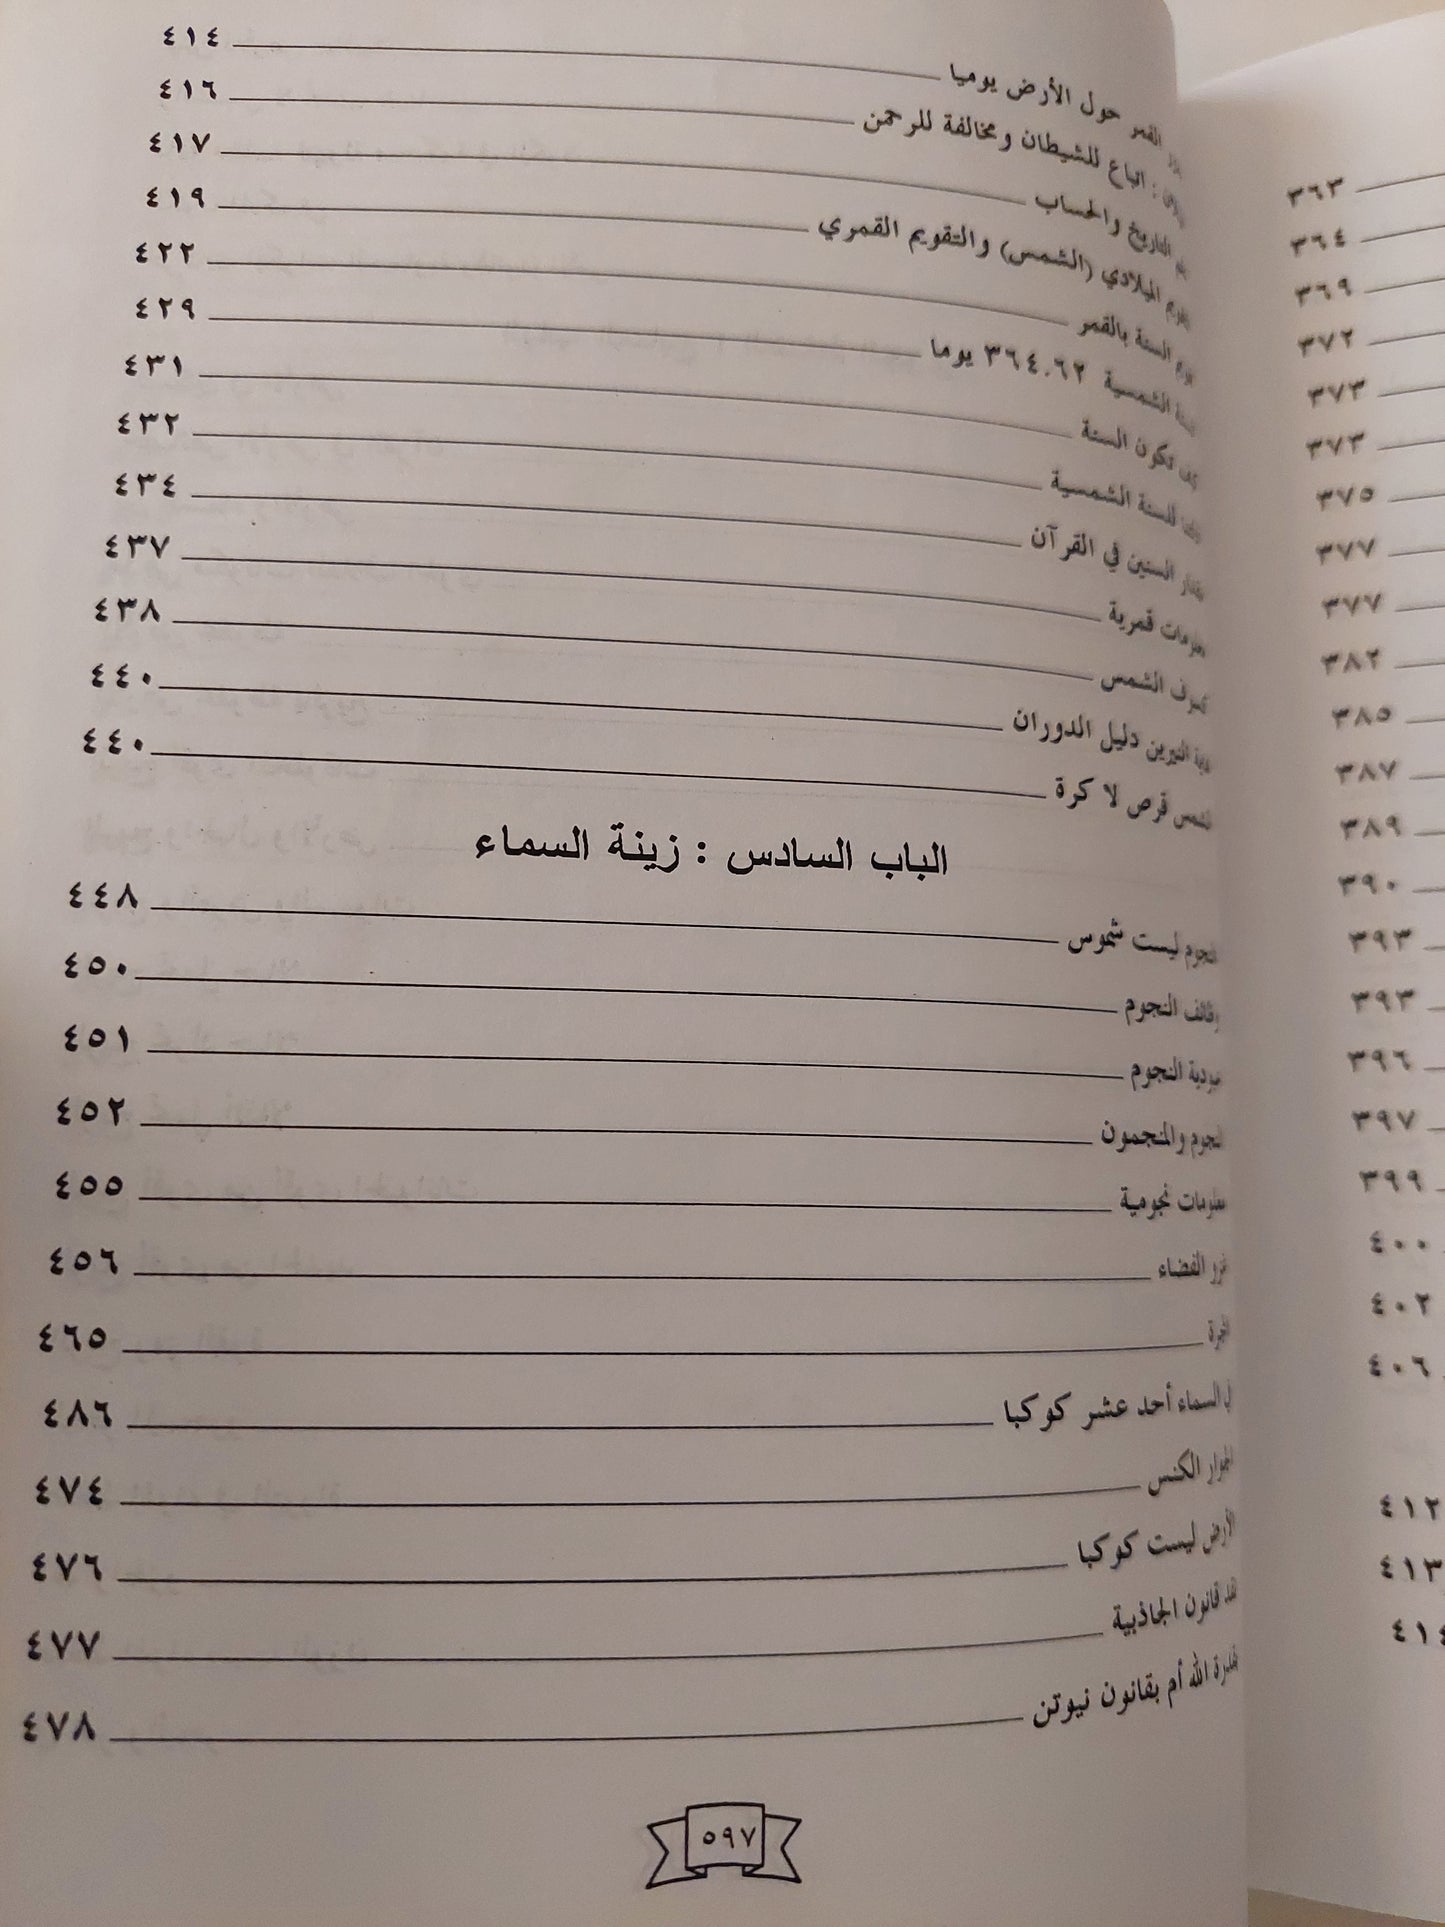 القمر حول الأرض يوميا ٤١٤
: اتباع للشيطان ومخالفة للرحمن ٤١٦
التاريخ والحساب ٤١٧
الميلادي (الشمس) والتقويم القمري ٤١٩
السنة بالقمر ٤٢٢
الشمسية ٣٦٤.٦٢ يوما ٤٢٩
تكون السنة ٤٣١
للسنة الشمسية ٤٣٢
السنين في القرآن ٤٣٤
معلومات قمرية ٤٣٧
الشمس ٤٣٨
النيرين دليل الدوران ٤٤٠
الشمس قرص لا كرة ٤٤٠
الباب السادس : زينة السماء
النجوم ليست شموس ٤٤٨
وظائف النجوم ٤٥٠
عبودية النجوم ٤٥١
النجوم والمنجمون ٤٥٢
معلومات نجومية ٤٥٥
الفضاء ٤٥٦
٤٦٥
في السماء أحد عشر كوكبا ٤٨٦
الجوار الكنس ٤٧٤
الأرض ليست كوكبا ٤٧٦
قانون الجاذبية ٤٧٧
بقدرة الله أم بقانون نيوتن ٤٧٨
٥٩٧
٣٦٣
٣٦٤
٣٦٩
٣٧٢
٣٧٣
٣٧٣
٣٧٥
٣٧٧
٣٧٧
٣٨٢
٣٨٥
٣٨٧
٣٨٩
٣٩٠
٣٩٣
٣٩٣
٣٩٦
٣٩٧
٣٩٩
٤٠٠
٤٠٢
٤٠٦
٤١٢
٤١٣
٤١٤